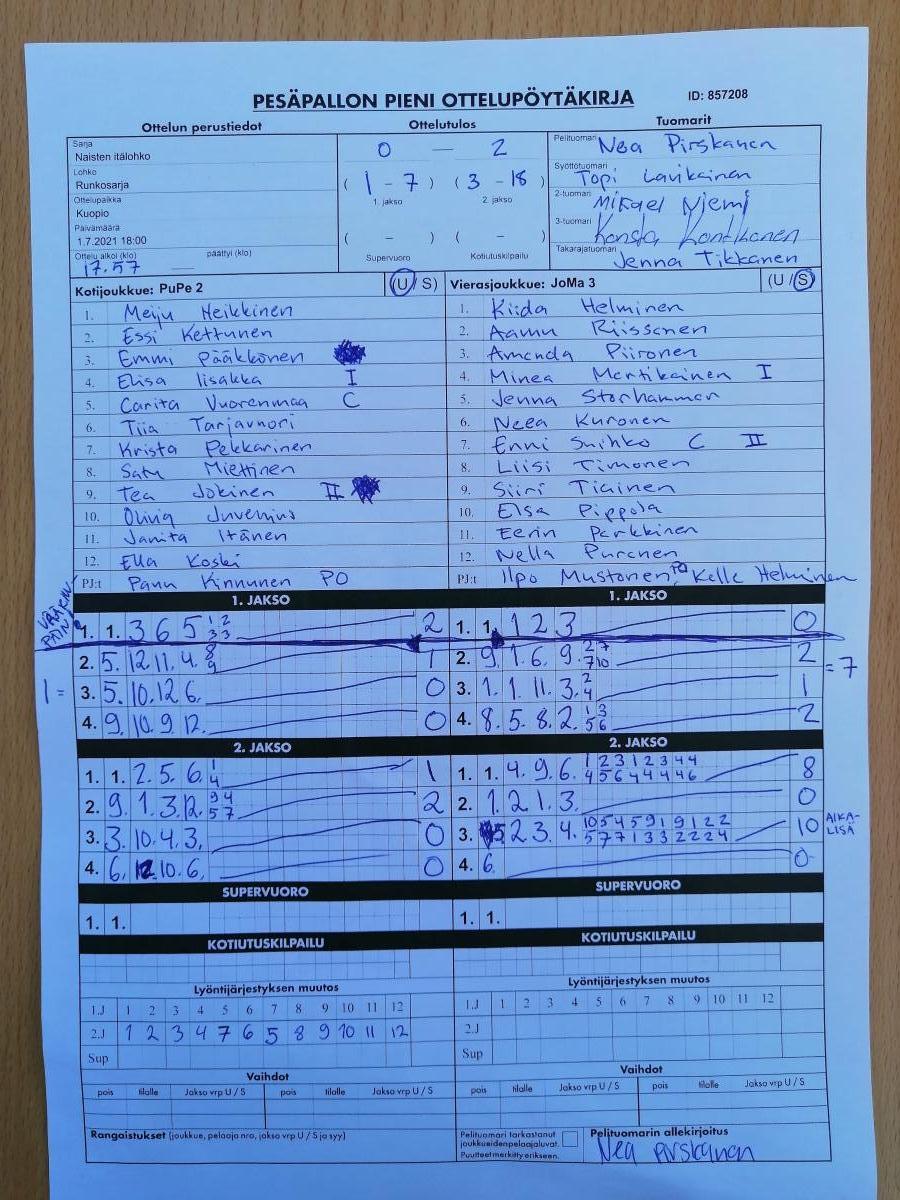 PESÄPALLON PIENI OTTELUPÖYTÄKIRJA ID: 857208
Ottelun perustiedot Ottelutulos Tuomarit
Sarja
Naisten itälohko
Lohko
Runkosarja
Ottelupaikka
Kuopio
Päivämäärä
1.7.2021 18:00
Ottelu alkoi (klo) päättyi (klo)
17.57 —
0 — 2
( 1 - 7 ) ( 3 - 18 )
1. jakso 2. jakso
( - ) ( - )
Supervuoro Kotiutuskilpailu
Pelituomari Nea Pirskanen
Syöttötuomari Topi Lavikainen
2-tuomari Mikael Niemi
3-tuomari Konsta Kontkanen
Takarajatuomari Jenna Tikkanen
Kotijoukkue: PuPe 2 (U/S)
1. Meiju Heikkinen
2. Essi Kettunen
3. Emmi Pääkkönen
4. Elisa Iisakka I
5. Carita Vuorenmaa C
6. Tiia Tarjavuori
7. Krista Pekkarinen
8. Satu Miettinen
9. Tea Jokinen II
10. Olivia Juvenius
11. Janita Itänen
12. Ella Koski
PJ:t Panu Kinnunen PO
Vierasjoukkue: JoMa 3 (U/S)
1. Kiida Helminen
2. Aamu Riissanen
3. Amanda Piironen
4. Minea Martikainen I
5. Jenna Storhammar
6. Neea Kuronen
7. Enni Suihko C II
8. Liisi Timonen
9. Siiri Tiainen
10. Elsa Pippola
11. Eerin Parkkinen
12. Nella Puronen
PJ:t Ilpo Mustonen PO Kalle Helminen
VÄÄRIN PÄIN!
1. JAKSO
1. 1. 3 6 5 1 2 2
3 3
2. 5. 12. 11. 4. 8 1
9
1 = 3. 5. 10. 12 6. 0
4. 9. 10. 9. 12. 0
1. JAKSO
1. 1. 1 2 3 0
2. 9. 1. 6. 9. 2 7 2
7 10
3. 1. 1. 11. 3. 2 1 = 7
4
4. 8. 5. 8. 2. 1 3 2
5 6
2. JAKSO
1. 1. 2. 5. 6. 1 1
4
2. 9. 1. 3. 12. 9 4 2
5 7
3. 3. 10. 4. 3. 0
4. 6. 12. 10. 6. 0
2. JAKSO
1. 1. 4. 9. 6. 1 2 3 1 2 3 4 4 8
4 5 6 4 4 4 4 6
2. 1. 2 1. 3. 0
3. 5 2. 3. 4. 10 5 4 5 9 1 9 1 2 2 10 AIKA-
5 7 7 1 3 3 2 2 2 4 LISÄ
4. 6. 0
SUPERVUORO
1. 1.
SUPERVUORO
1. 1.
KOTIUTUSKILPAILU
KOTIUTUSKILPAILU
Lyöntijärjestyksen muutos
1.J 1 2 3 4 5 6 7 8 9 10 11 12
2.J 1 2 3 4 7 6 5 8 9 10 11 12
Sup
Lyöntijärjestyksen muutos
1.J 1 2 3 4 5 6 7 8 9 10 11 12
2.J
Sup
Vaihdot
pois tilalle Jakso vrp U / S pois tilalle Jakso vrp U / S
Vaihdot
pois tilalle Jakso vrp U / S pois tilalle Jakso vrp U / S
Rangaistukset (joukkue, pelaaja nro, jakso vrp U / S ja syy)
Pelituomari tarkastanut
joukkueidenpelaajaluvat.
Puutteet merkitty erikseen.
Pelituomarin allekirjoitus
Nea Pirskanen